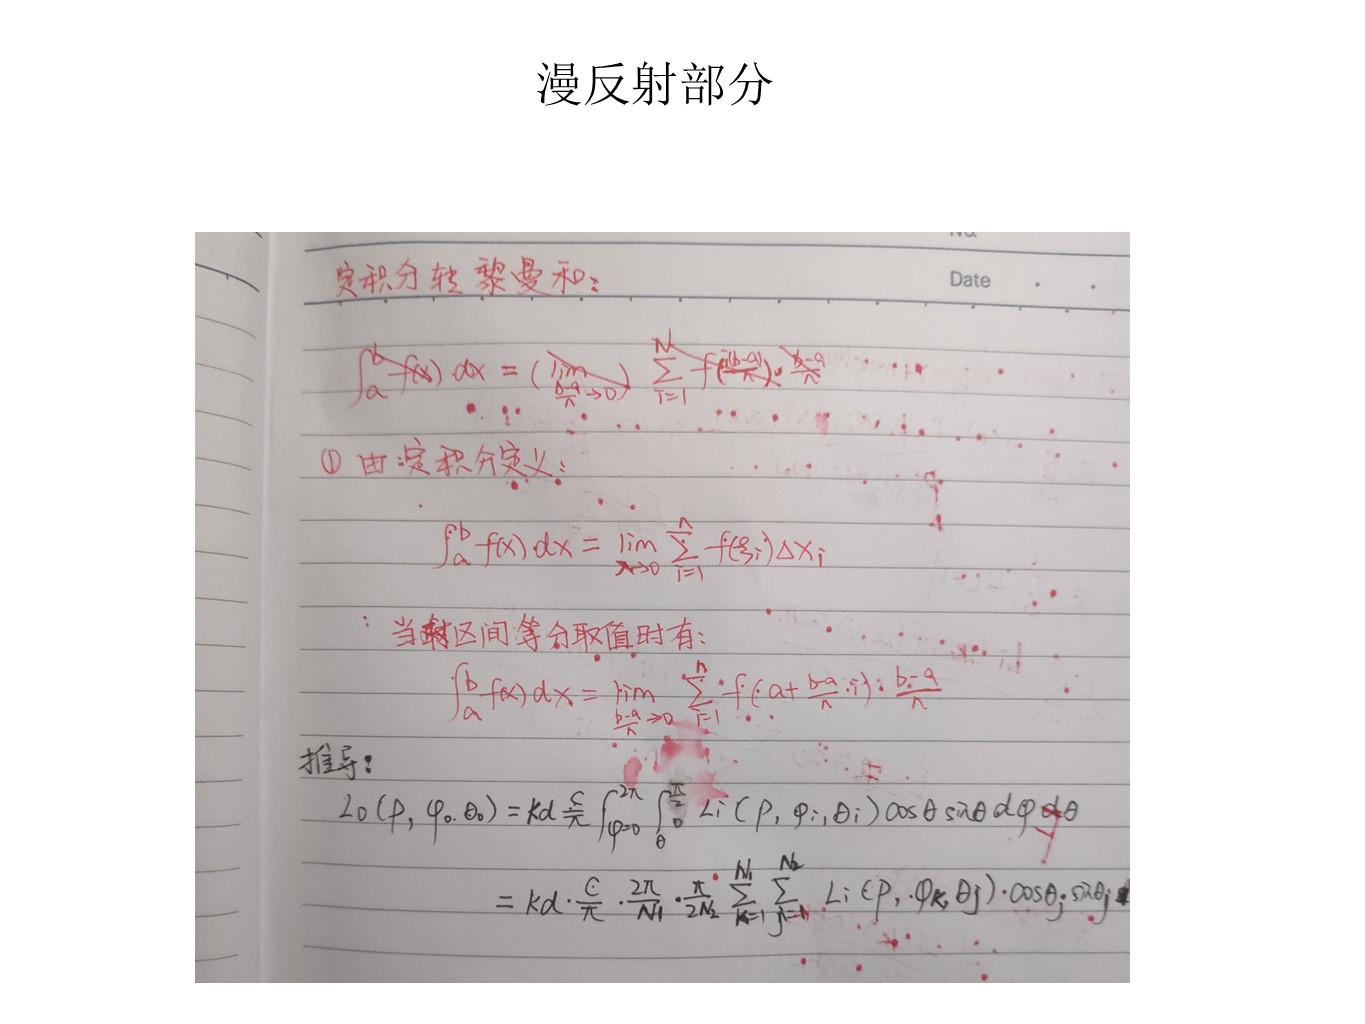 漫反射部分
No.
Date
定积分转黎曼和:
∫_a^b f(x) dx = (lim_{(b-a)/n→0}) Σ_{i=1}^N f(i(b-a)/n)·(b-a)/n
① 由定积分定义:
∫_a^b f(x) dx = lim_{λ→0} Σ_{i=1}^n f(ξi)Δxi
当区间等分取值时有:
∫_a^b f(x) dx = lim_{(b-a)/n→0} Σ_{i=1}^n f(a+(b-a)/n·i)·(b-a)/n
推导:
Lo(p, φo, θo) = kd c/π ∫_{φ=0}^{2π} ∫_{θ=0}^{π/2} Li(p, φi, θi) cosθ sinθ dφ dθ
= kd·c/π·2π/N1·π/2N2 Σ_{k=1}^{N1} Σ_{j=1}^{N2} Li(p, φk, θj)·cosθj·sinθj